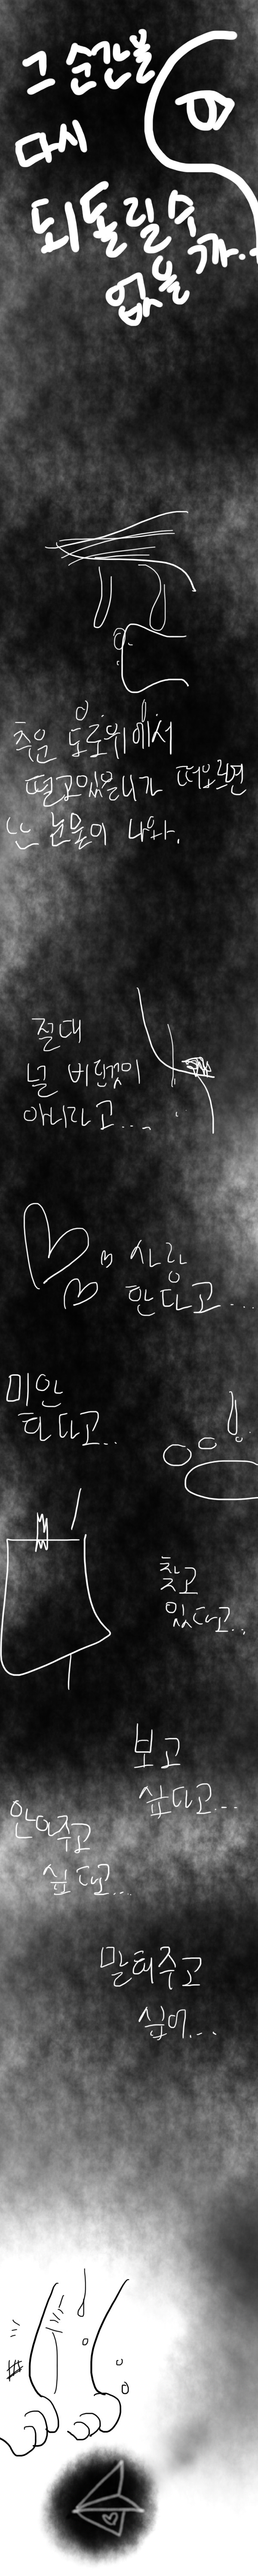 그 순간을
다시
되돌릴 수
없을까..
추운 도로위에서
떨고있을너가 떠오르면
난 눈물이 나와.
절대
널 버린것이
아니라고....
사랑
한다고...
미안
하다고..
찾고
있다고..
보고
싶다고...
안아주고
싶다고...
말해주고
싶어...